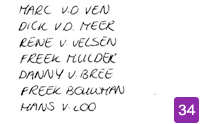 MARC V.D VEN
DICK V.D. MEER
RENE V. VELSEN
FREEK MULDER
DANNY V. BREE
FREEK BOUWMAN
HANS V. LOO
34